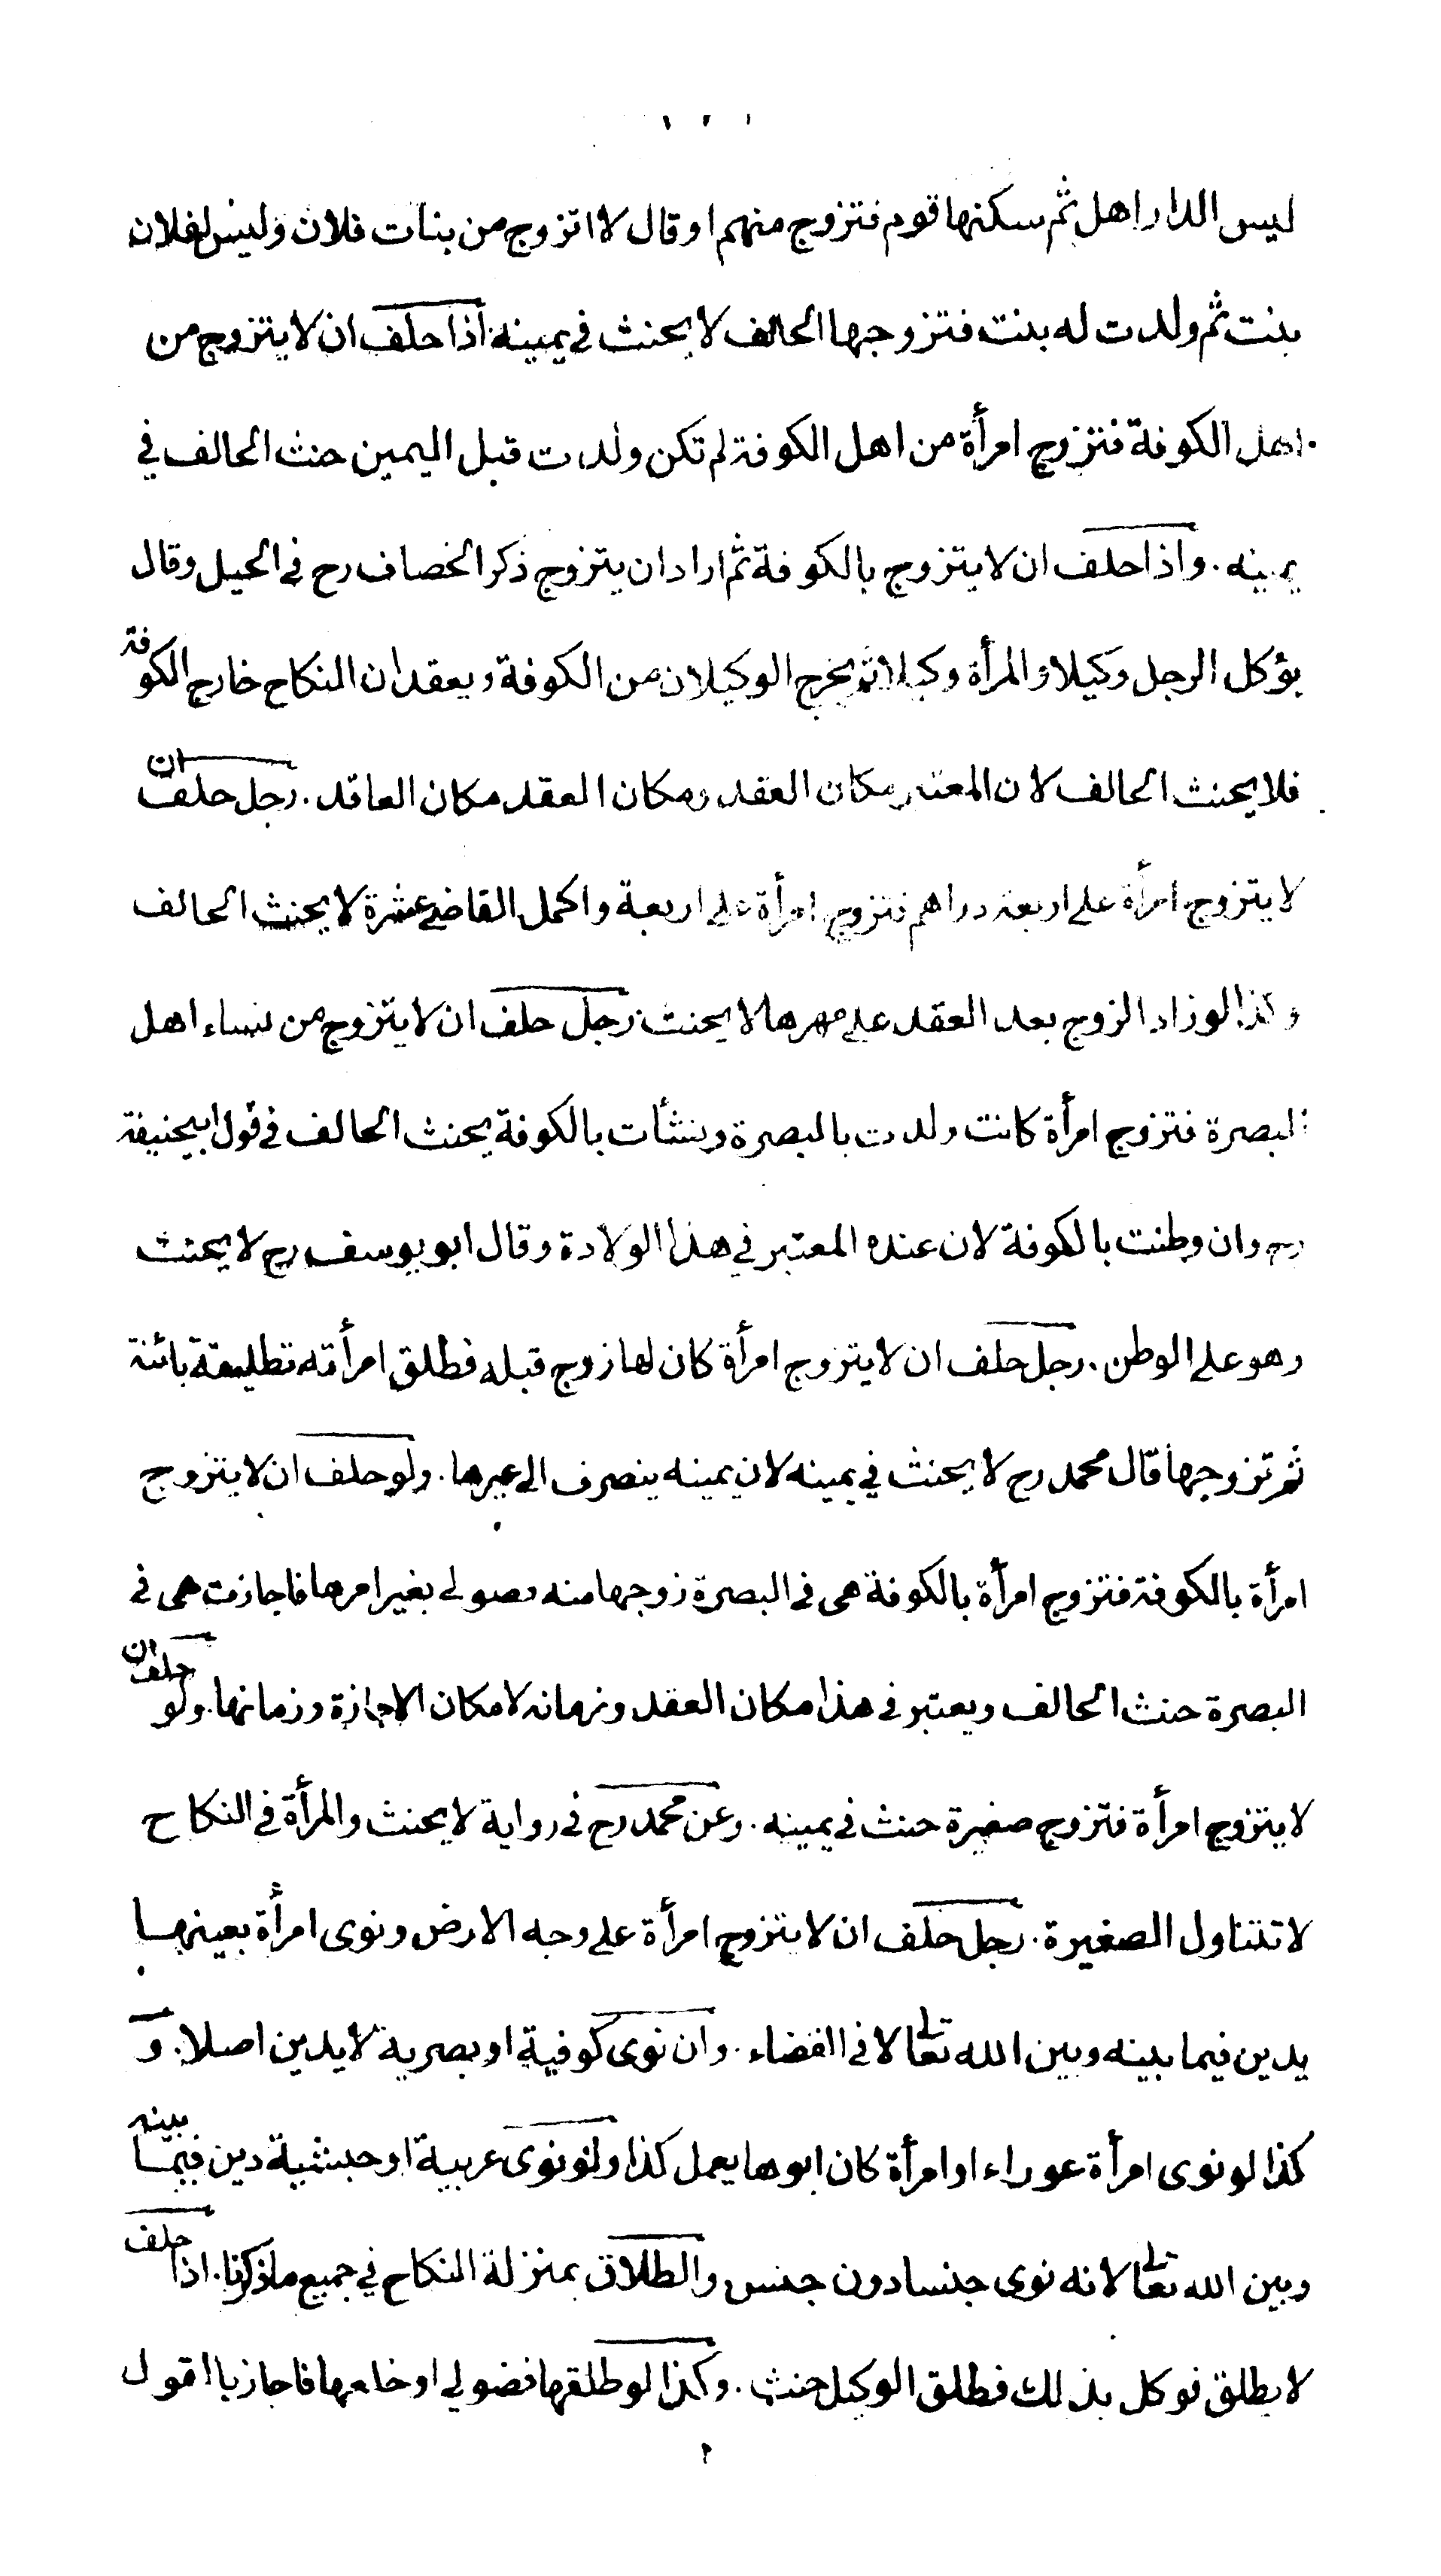 ليس الدار اهل ثم سكنها قوم فتزوج منهم او قال لا اتزوج من بنات فلان وليس لفلان
بنت ثم ولدت له بنت فتزوجها الحالف لا يحنث في يمينه اذا حلف ان لا يتزوج من
اهل الكوفة فتزوج امرأة من اهل الكوفة لم تكن ولدت قبل اليمين حنث الحالف في
يمينه . واذا حلف ان لا يتزوج بالكوفة ثم اراد ان يتزوج ذكر الخصاف رح في الحيل وقال
يؤكل الرجل وكيلا والمرأة وكيلا ثم يخرج الوكيلان من الكوفة ويعقدان النكاح خارج الكوفة
فلا يحنث الحالف لان المعتبر مكان العقد ومكان العقد مكان العاقد . رجل حلف ان
لا يتزوج امرأة على اربعة دراهم فتزوج امرأة على اربعة واكمل القاضي عشرة لا يحنث الحالف
وكذا لو زاد الزوج بعد العقد على مهرها لا يحنث . رجل حلف ان لا يتزوج من نساء اهل
البصرة فتزوج امرأة كانت ولدت بالبصرة ونشأت بالكوفة يحنث الحالف في قول ابيحنيفة
رح وان وطنت بالكوفة لان عنده المعتبر في هذا الولادة وقال ابو يوسف رح لا يحنث
وهو على الوطن . رجل حلف ان لا يتزوج امرأة كان لها زوج قبله فطلق امرأته تطليقة بائنة
ثم تزوجها قال محمد رح لا يحنث في يمينه لان يمينه ينصرف الى غيرها . ولو حلف ان لا يتزوج
امرأة بالكوفة فتزوج امرأة بالكوفة هى في البصرة زوجها منه فضولي بغير امرها فاجازت هى في
البصرة حنث الحالف ويعتبر في هذا مكان العقد وزمانه لا مكان الاجازة وزمانها . ولو حلف ان
لا يتزوج امرأة فتزوج صغيرة حنث في يمينه . وعن محمد رح في رواية لا يحنث والمرأة في النكاح
لا تتناول الصغيرة . رجل حلف ان لا يتزوج امرأة على وجه الارض ونوى امرأة بعينها
يدين فيما بينه وبين الله تعالى لا في القضاء . وان نوى كوفية او بصرية لا يدين اصلا . و
كذا لو نوى امرأة عوراء او امرأة كان ابوها يعمل كذا ولو نوى عربية او حبشية دين فيما بينه
وبين الله تعالى لانه نوى جنسا دون جنس والطلاق بمنزلة النكاح في جميع ما ذكرنا . اذا حلف
لا يطلق فوكل بذلك فطلق الوكيل حنث . وكذا لو طلقها فضولي او خلعها فاجاز باا قول